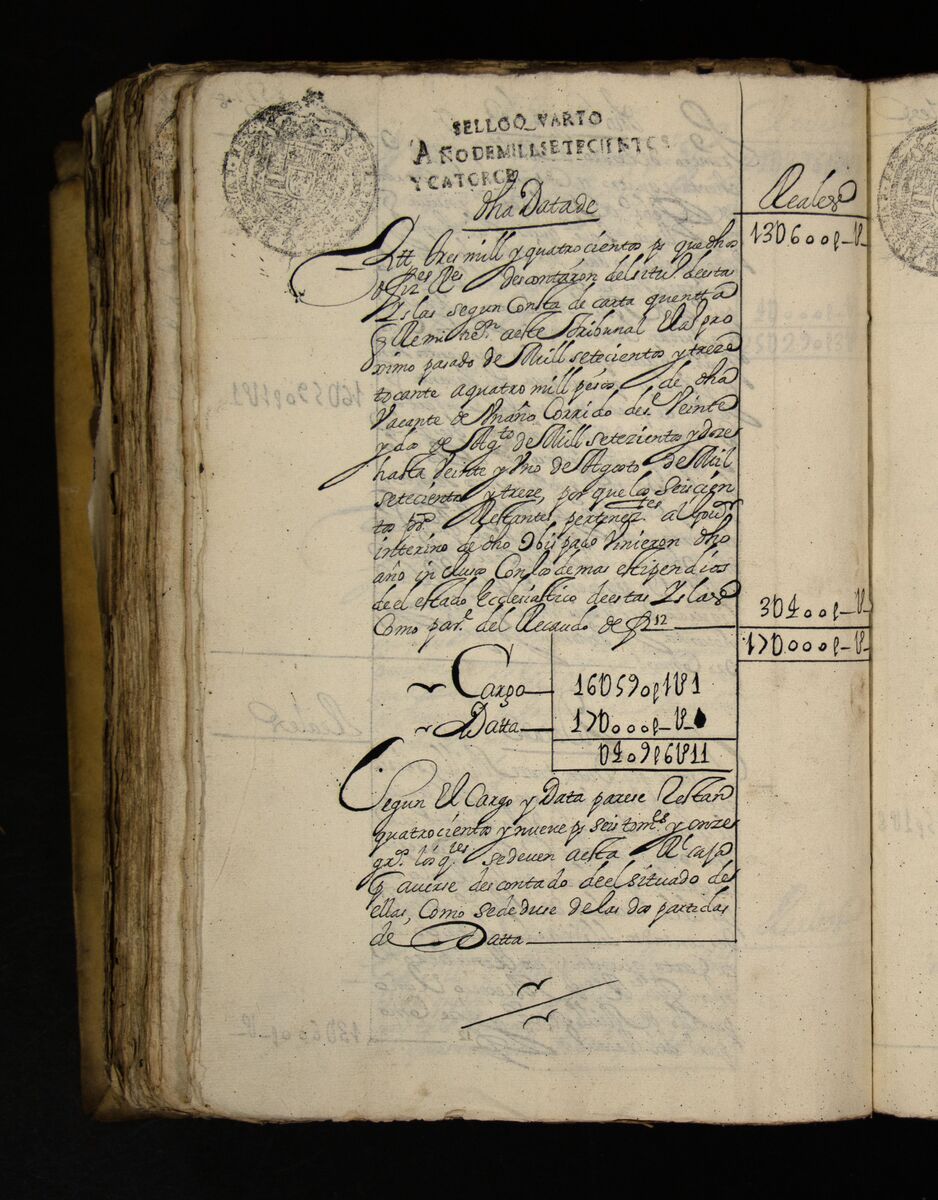 SELLOQ_VARTO
AÑODEMILLSETECIENTOS
YCATORCE
dha Datade
Reales
13U600p-U-
Ytt tres mill y quatrocientos ps que dhos
descontaron del situdo deesta
Yslas segun Consta de carta quentta
Remitida aeste Tribunal El año pro
ximo pasado de Mill setecientos y treze
tocante a quatro mill pesos de dha
Vacante de Un año Corrido desde Veinte
y dos de Agto de Mill setezientos y doze
hasta Veinte y Uno de Agosto de Mill
setecientos y treze, por que los Seiscien
tos ps Restantes pertenecites al Govor
interino de dho Obispado Vinieron dho
año inclusos Con los demas estipendios
de el estado Ecclesiastico deestas Yslas
Como par.e del Recaudo de
3U400p-U-
17U000p-U-
Cargo 16U590p1U1
Datta 17U000p-U-
0U409p6U11
Segun El Cargo y Data parese Restan
quatrocientos y nueve ps seis tomes y onze
gros los qes sedeven aesta Rl caja
p averse descontado deel situado de
ellas, Como sededuse de las dos partidas
de Datta